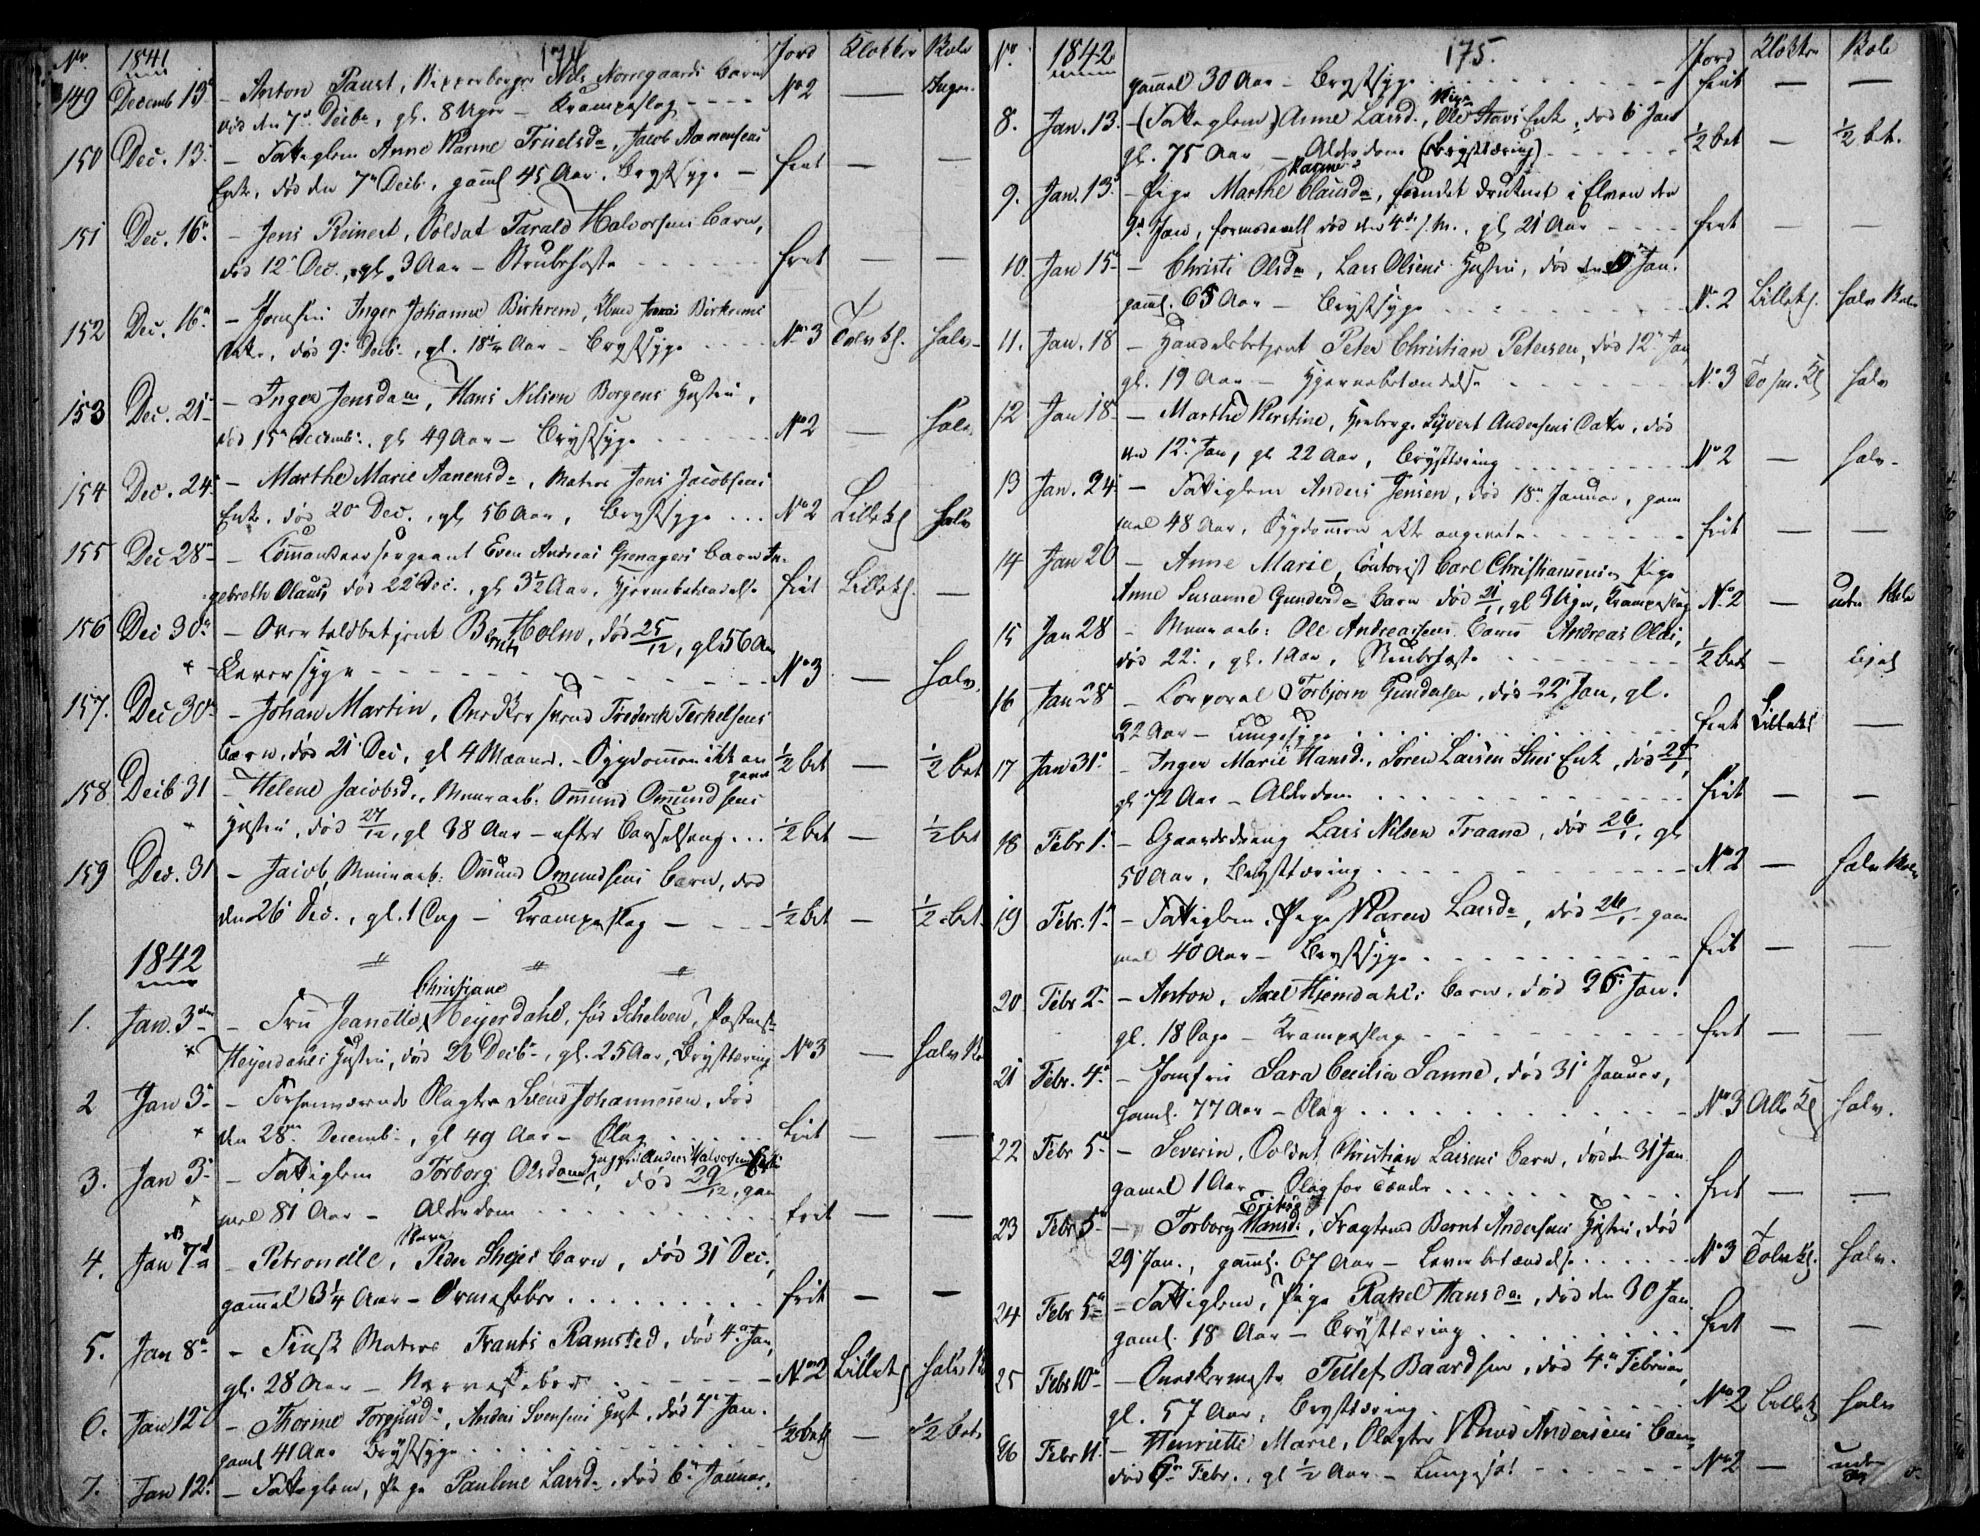 Nr. 1841 174 Jord Klokker Bule
149 Decemb 13de - Anton Faust, Nils Norregaards Barn Nº 2 — Ingen
død den 7de Decbr, gl. 8 Uger — Krampeslag
150 Dec. 13. - Fattiglem Anne Karine Truelsdr, Jacob Aanensens
Enke, død den 7de Decb., gaml 45 Aar. Brystsyge — frit — —
151 Dec. 16de - Jens Reinert, Soldat Tarald Halvorsens Barn,
død 12te Dec., gl. 3 Aar — Strubehoste frit — —
152 Dec. 16de - Jomfru Inger Johanne Birkrem, Birkrems
Datr., død 9de Decbr, gl. 18¼ Aar — Brystsyge Nº 3 Tolvkl. halv
153 Dec. 21 - Inger Jensdatter, Hans Nilsen Borgens Hustru,
død 15de Decemb., gl 49 Aar — Brystsyge Nº 2 — halv
154 Dec. 24 - Marthe Marie Aanensdr, Matros Jens Jacobsens
Enke, død 20 Dec., gl 56 Aar, Brystsyge Nº 2 Lillekl halv
155 Dec 28 - Commandeersergeant Even Andreas Grenagers Barn In-
gebreth Olaus, død 22 Dec., gl 3½ Aar, Hjernebetændelse frit Lillekl. —
156 Dec 30 - Overtoldbetjent Berent Holm, død 25/12, gl. 56 Aar
Leversyge Nº 3 — halv
157. Dec 30 - Johan Martin, Snedkersvend Frederik Terkelsens
Barn, død 21 Dec, gl 4 Maaned. — Sygdommen ikke an
givet ½ bet — ½ bet
158 Decb 31 - Helene Jacobsd., Muurarb: Omund Omundsens
Hustru, død 27/12, gl 38 Aar — efter Barselseng ½ bet — ½ bet
159 Dec. 31 - Jacob, Muurarb: Omund Omundsens Barn, død
den 26 Dec., gl. 1 Dag — Krampeslag ½ bet — ½ bet
1842
1. Jan. 3die - Fru Jeanette Christiane Heijerdahl, fød Schelven, Postmest
Heijerdahls Hustru, død 26 Decbr, gl. 25 Aar, Brysttæring Nº 3 — halv
2 Jan 3 - Slagter Svend Johannesen, død
den 28de Decemb., gl 49 Aar — Slag frit — —
3. Jan 3 - Fattiglem Torborg Olsdatter, Anders Halvorsens Enke, død 29/12, gam
mel 81 Aar — Alderdom frit — —
4. Jan 7de - Petronelle, Peder Skejes Barn, død 31 Dec.,
gammel 3¼ Aar — Ormefeber frit — —
5. Jan 8de - Finsk Matros Frants Ramsted, død 4de Jan,
gl. 28 Aar — Nervefeber Nº 2 Lillekl halv
6. Jan 12 - Thorine Torgjusd., Anders Svensens Hust., død 7de Jan.
gaml 41 Aar Brystsyge ½ bet — ½ bet
7. Jan 12. - Fattiglem, Pige Pauline Larsdr, død 6te Januar,
Nr. 1842 175. Jord Klokker Bule
gammel 30 Aar — Brystsyge frit — —
8. Jan. 13. - (Fattiglem) Anne Larsd., Ole Enke, død 6 Jan
gl. 75 Aar — Alderdom (Brysttæring) ½ bet — ½ bet.
9. Jan. 13. - Pige Marthe Karine Clausdr, fundet druknet i Elven den
9de Jan, formodentl død den 4de s. M., gl 21 Aar frit — —
10. Jan 15 - Christi Olsdr, Lars Olsens Hustru, død den Jan.
gaml. 65 Aar — Brystsyge Nº 2 Lillekl. halv Bule
11. Jan. 18 - Handelsbetjent Peter Christian Petersen, død 12 Jan
gl. 19 Aar — Hjernebetændelse Nº 3 To sm. Kl halv
12 Jan 18 - Marthe Kirstine, Sjvert Andersens Datr, død
den 12 Jan, gl 22 Aar, Brysttæring Nº 2 — halv
13 Jan. 24 - Fattiglem Anders Jensen, død 18de Januar, gam
mel 48 Aar, Sygdommen ikke angivet frit — —
14 Jan 20 - Anne Marie, Contorist Carl Christiansens Pige
Anne Susanne Gundersdr Barn død 21/1, gl 3 Uger, Krampeslag Nº 2 — uden Bule
15 Jan 28 - Muurarb: Ole Andreassens Barn Andreas Olai,
død 22, gl. 1 Aar, Strubehoste ½ bet —
16 Jan 28 - Corporal Torbjørn Gundersen, død 22 Jan, gl.
22 Aar — Lungesyge frit Lillekl —
17 Jan 31 - Inger Marie Hansd., Søren Larsen Enk., død
gl 72 Aar — Alderdom frit — —
18 Febr 1. - Gaardsdreng Lars Nilsen Traane, død 26/1, gl
50 Aar, Brysttæring Nº 2 — halv Bule
19 Febr. 1 - Fattiglem, Pige Karen Larsdr, død 26/1 gam
mel 40 Aar — Brystsyge frit — —
20 Febr 2 - Anton, Axel Hjemdahls Barn, død 26 Jan.
gl. 18 Dage — Krampeslag frit — —
21 Febr. 4 - Jomfru Sara Cecilia Sanne, død 31 Januar,
gaml. 77 Aar — Slag Nº 3 Alle Kl halv.
22 Febr 5 - Severin, Soldat Christian Larsens Barn, død den 31 Jan
gamel 1 Aar Slag for Tænder frit — —
23 Febr 5 - Torborg Eriks Hansd., Bernt Andersens Hustru, død
29 Jan., gaml. 67 Aar — Leverbetændelse Nº 3 Tolvkl. halv.
24 Febr 5 - Fattiglem, Pige Rakel Hansdr, død den 30 Jan.
gaml. 18 Aar — Brysttæring frit — —
25 Febr 10 - Snedkermester Tellef Baardsen, død 4de Februar,
gl. 57 Aar, Brysttæring Nº 2 Lillekl halv
26 Febr 11 - Henriette Marie, Slagter Knud Andersens Barn,
død 6te Febr., gl ½ Aar — Nº 2 — uden